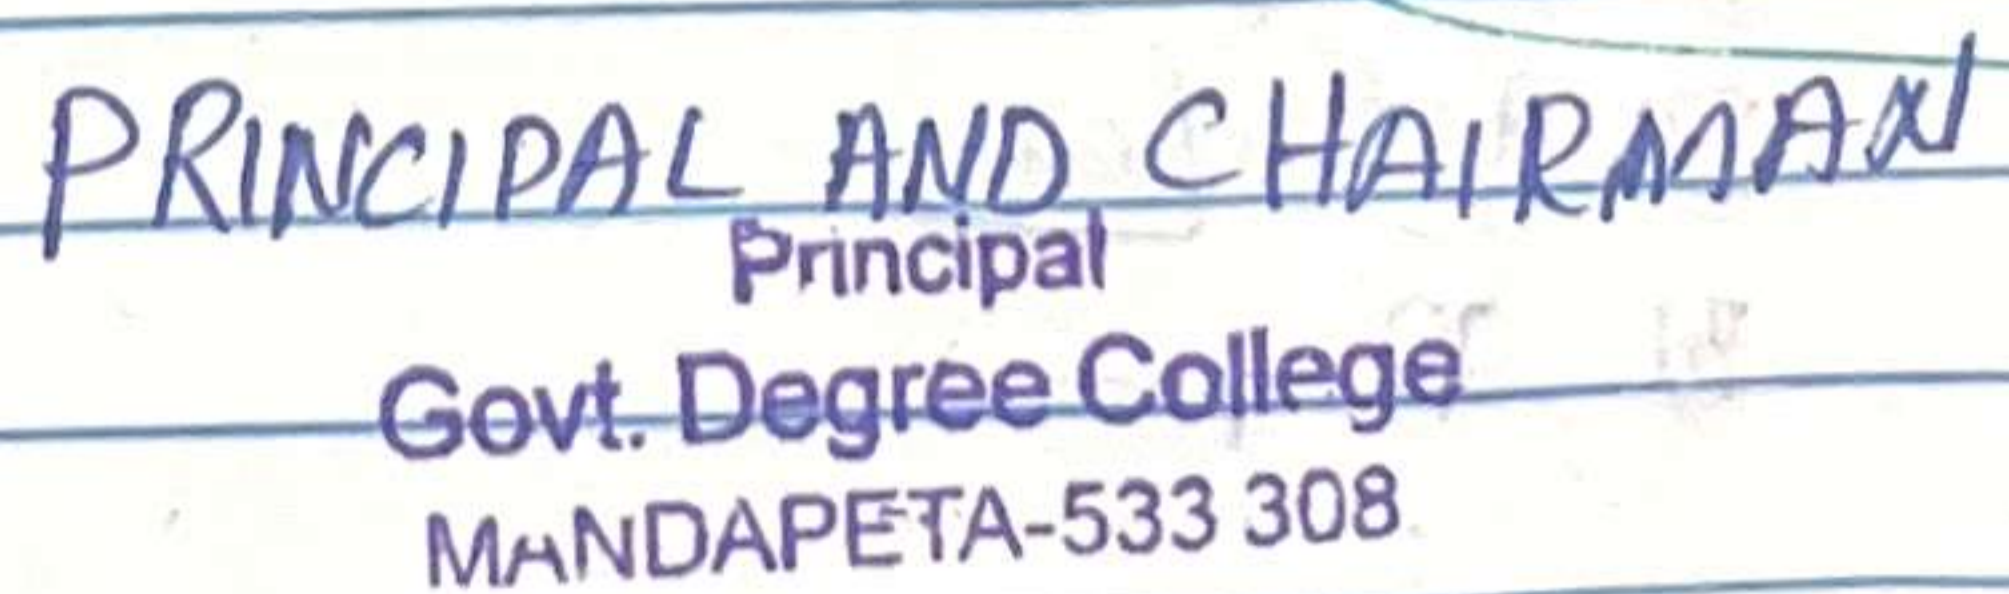 PRINCIPAL AND CHAIRMAN
Principal
Govt. Degree College
MANDAPETA-533 308